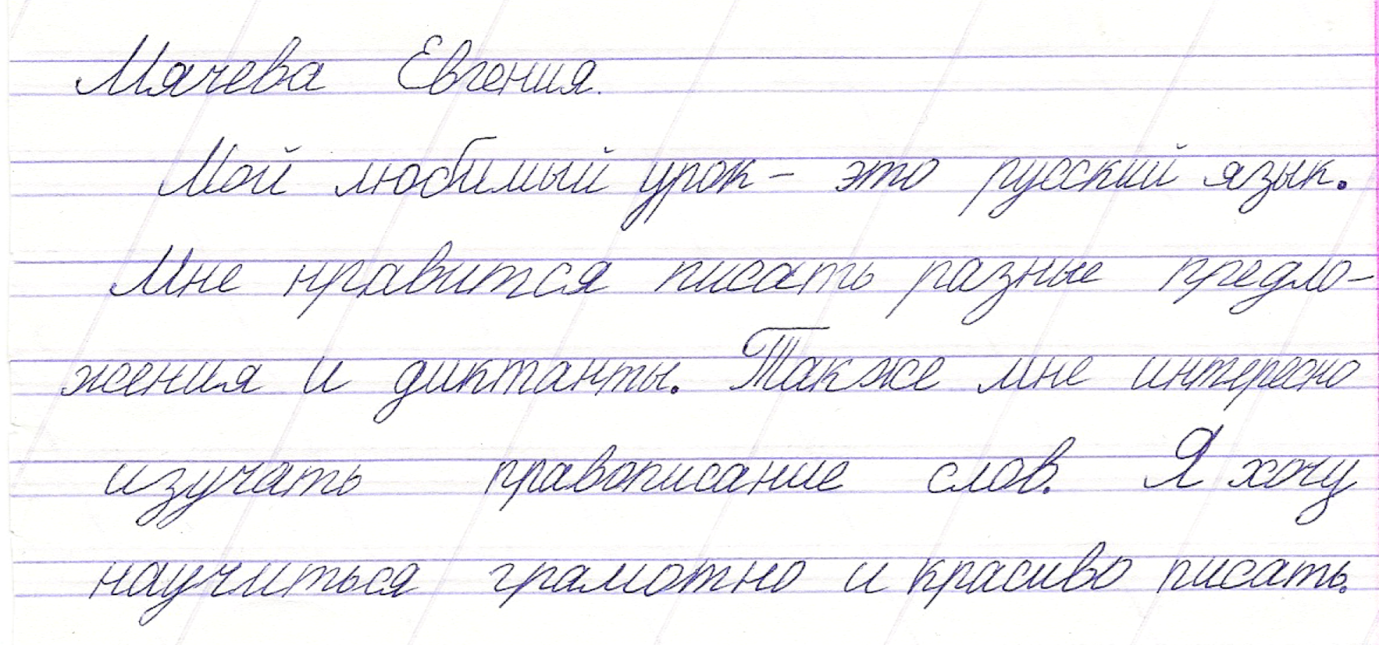 Мячева Евгения.
Мой любимый урок – это русский язык.
Мне нравится писать разные предло-
жения и диктанты. Также мне интересно
изучать правописание слов. Я хочу
научиться грамотно и красиво писать.